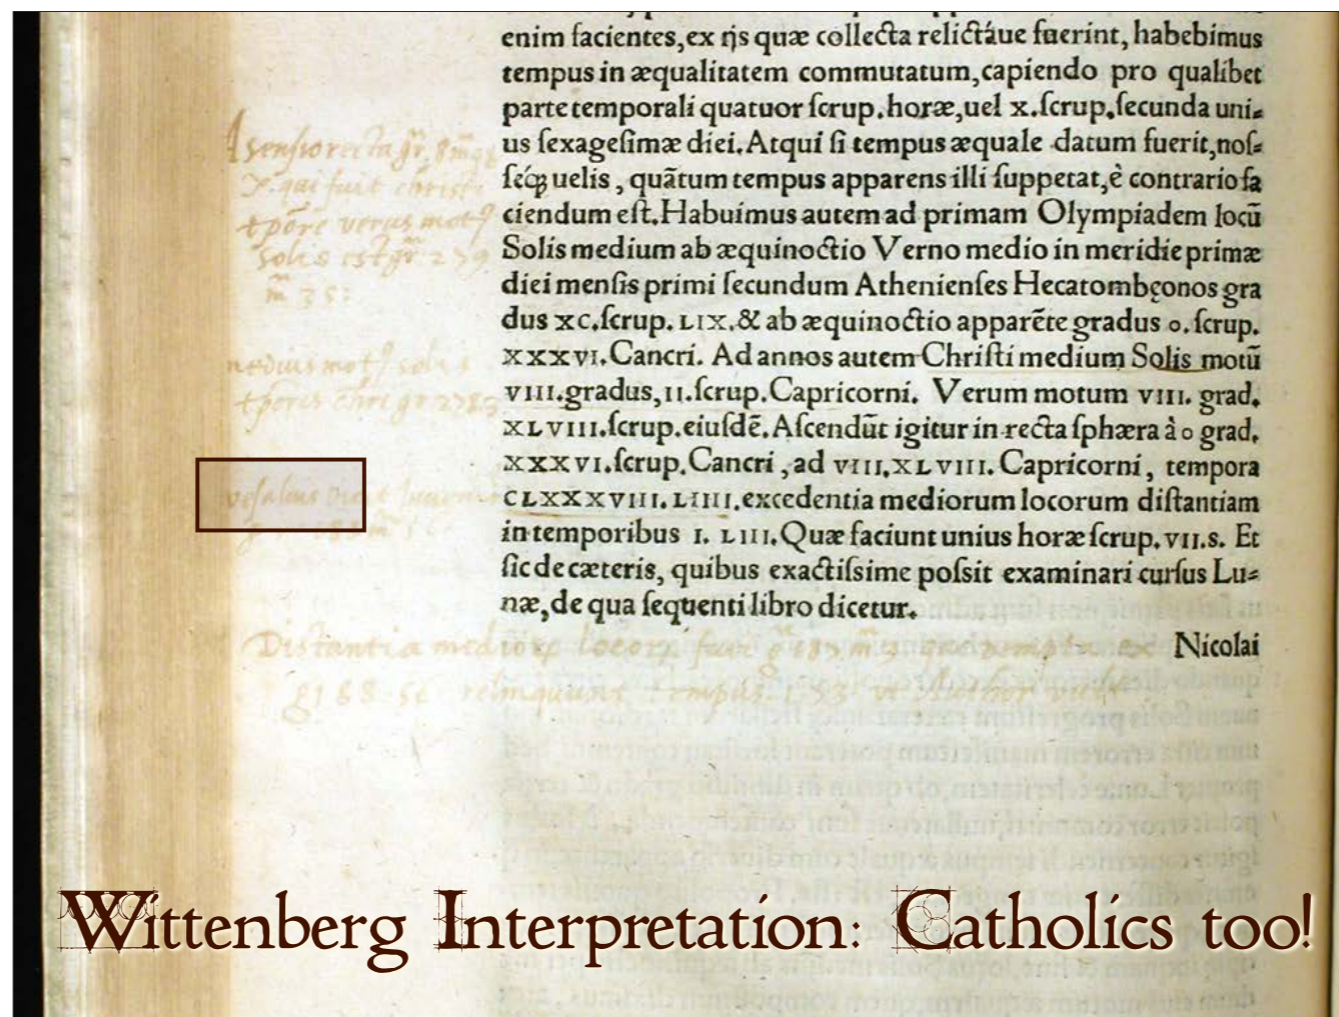 enim facientes,ex ijs quæ collecta relictáue fuerint, habebimus
tempus in æqualitatem commutatum,capiendo pro qualibet
parte temporali quatuor ſcrup.horæ,uel x.ſcrup.ſecunda uni⸗
us ſexageſimæ diei.Atqui ſi tempus æquale datum fuerit,noſ⸗
ſéqꝫ uelis, quãtum tempus apparens illi ſuppetat,è contrario fa
ciendum eſt.Habuimus autem ad primam Olympiadem locũ
Solis medium ab æquinoctio Verno medio in meridie primæ
diei menſis primi ſecundum Athenienſes Hecatombęonos gra
dus XC.ſcrup. LIX.& ab æquinoctio apparẽte gradus 0. ſcrup.
XXXVI.Cancri. Ad annos autem Chriſti medium Solis motũ
VIII.gradus,II.ſcrup.Capricorni. Verum motum VIII. grad.
XLVIII.ſcrup.eiuſdẽ.Aſcendũt igitur in recta ſphæra à 0 grad.
XXXVI.ſcrup.Cancri, ad VIII.XLVIII. Capricorni, tempora
CLXXXVIII.LIIII.excedentia mediorum locorum diſtantiam
in temporibus I. LIII.Quæ faciunt unius horæ ſcrup.VII.s. Et
ſic de cæteris, quibus exactiſsime poſsit examinari curſus Lu⸗
næ,de qua ſequenti libro dicetur.
Nicolai
Ascensio recta gr.
qui fuit christi
tpore verus mot
solis est gr. 279
m 35:
medius mot solis
Distantia
relinquunt tempus 1.53 ut Author
Wittenberg Interpretation: Catholics too!